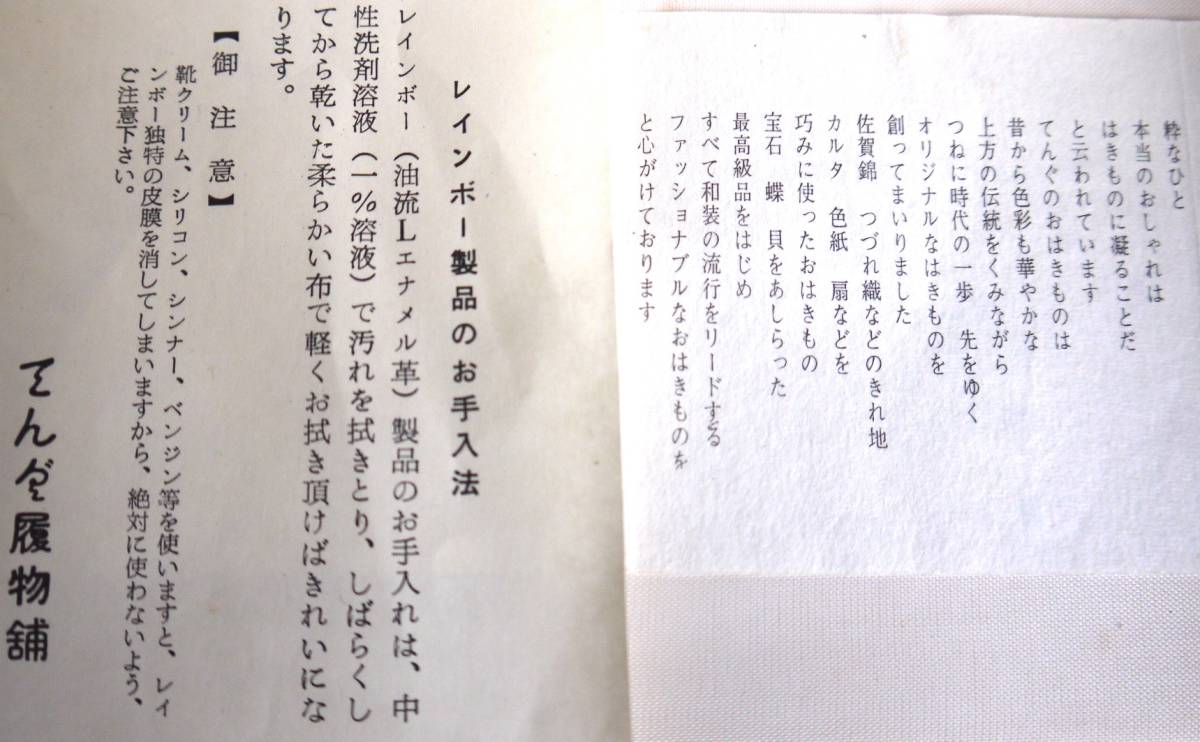 粋なひと
本当のおしゃれは
はきものに凝ることだ
と云われています
てんぐのおはきものは
昔から色彩も華やかな
上方の伝統をくみながら
つねに時代の一歩 先をゆく
オリジナルなはきものを
創ってまいりました
佐賀錦 つづれ織などのきれ地
カルタ 色紙 扇などを
巧みに使ったおはきもの
宝石 蝶 貝をあしらった
最高級品をはじめ
すべて和装の流行をリードする
ファッショナブルなおはきものを
と心がけております
レインボー製品のお手入法
レインボー(油流Lエナメル革)製品のお手入れは、中
性洗剤溶液(一%溶液)で汚れを拭きとり、しばらくし
てから乾いた柔らかい布で軽くお拭き頂けばきれいにな
ります。
【御注意】
靴クリーム、シリコン、シンナー、ベンジン等を使いますと、レイ
ンボー独特の皮膜を消してしまいますから、絶対に使わないよう、
ご注意下さい。
てんぐ履物舗